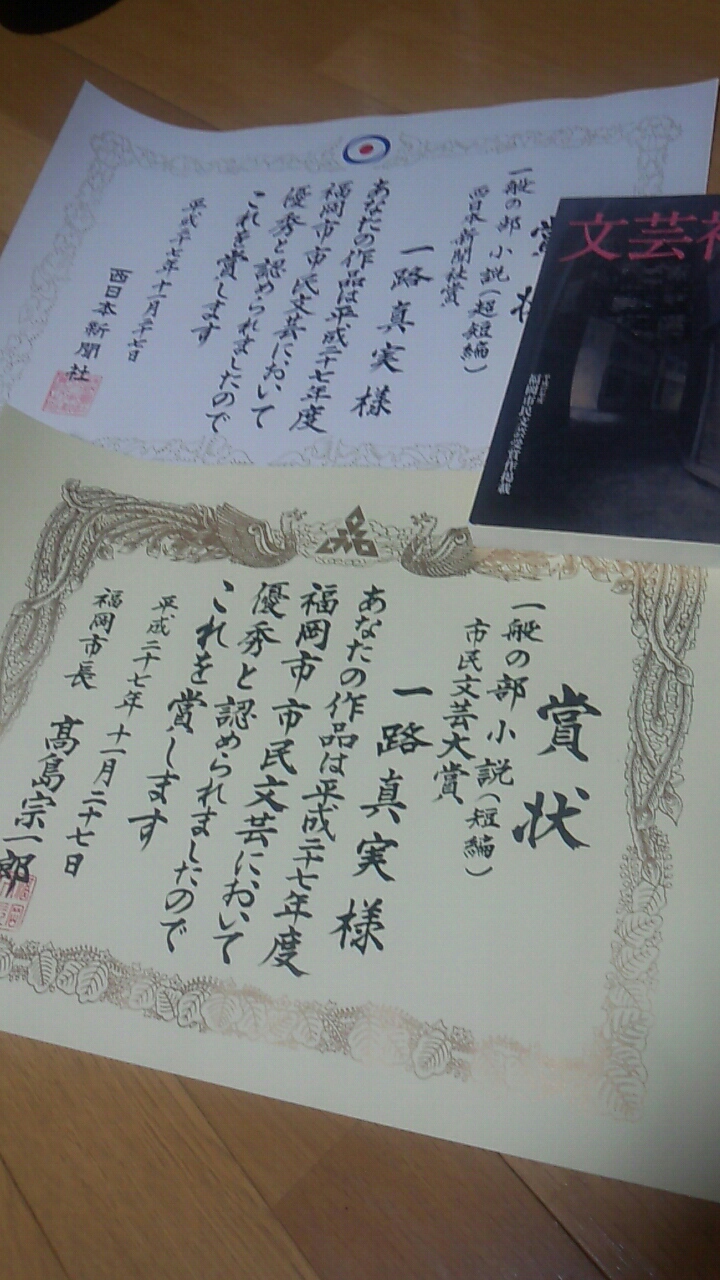 賞状
一般の部 小説（超短編）
西日本新聞社賞
一路真実様
あなたの作品は平成二十七年度
福岡市市民文芸において
優秀と認められましたので
これを賞します
平成二十七年十一月二十七日
西日本新聞社
文芸福
福岡市民文芸受賞作掲載
賞状
一般の部 小説（短編）
市民文芸大賞
一路真実様
あなたの作品は平成二十七年度
福岡市市民文芸において
優秀と認められましたので
これを賞します
平成二十七年十一月二十七日
福岡市長 髙島宗一郎